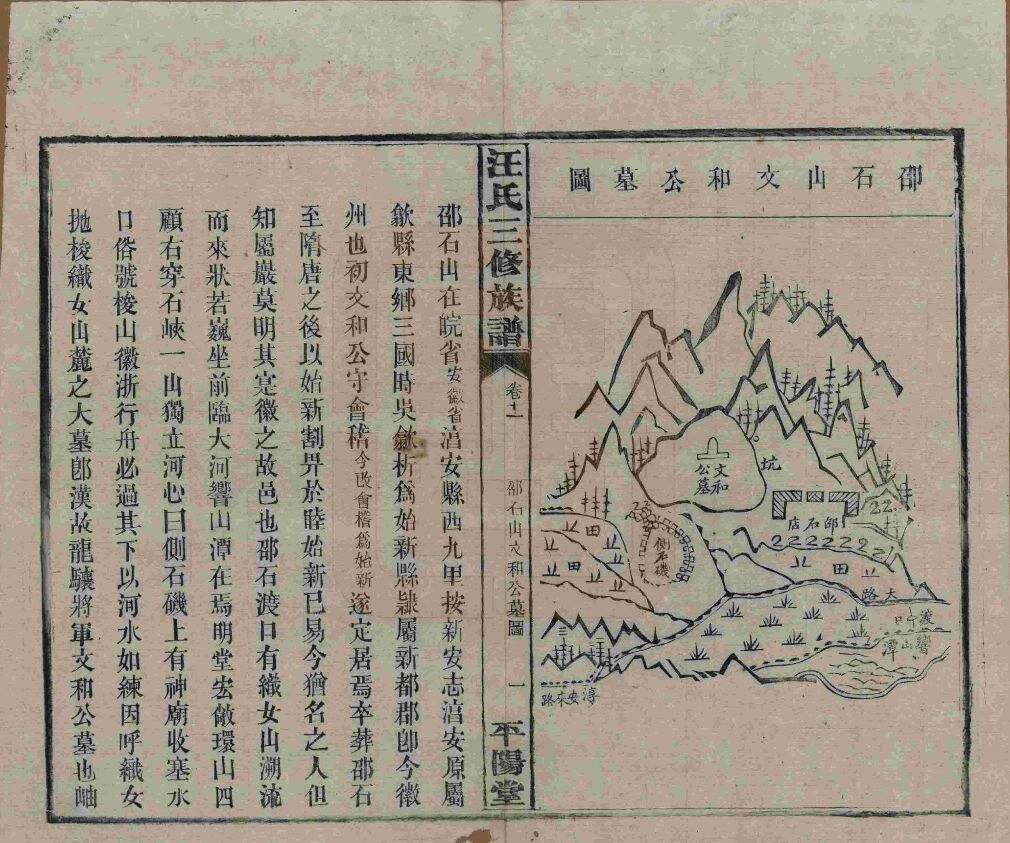 邵石山文和公墓圖
坑
文和公墓
邵石店
側石磯
田
田
大路
渡口
響山潭
淳安來路
汪氏三修族譜
卷十一
邵石山文和公墓圖
一
平陽堂
邵石山在皖省安徽省湻安縣西九里按新安志湻安原屬
歙縣東鄉三國時吳歙析爲始新縣隷屬新都郡卽今徽
州也初文和公守會稽今改會稽爲始新遂定居焉卒葬邵石
至隋唐之後以始新割畀於睦始新已易今猶名之人但
知屬嚴莫明其寔徽之故邑也邵石渡口有織女山溯流
而來狀若巍坐前臨大河響山潭在焉明堂宏敞環山四
顧右穿石峽一山獨立河心曰側石磯上有神廟收塞水
口俗號梭山徽浙行舟必過其下以河水如練因呼織女
拋梭織女山麓之大墓卽漢故龍驤將軍文和公墓也岫